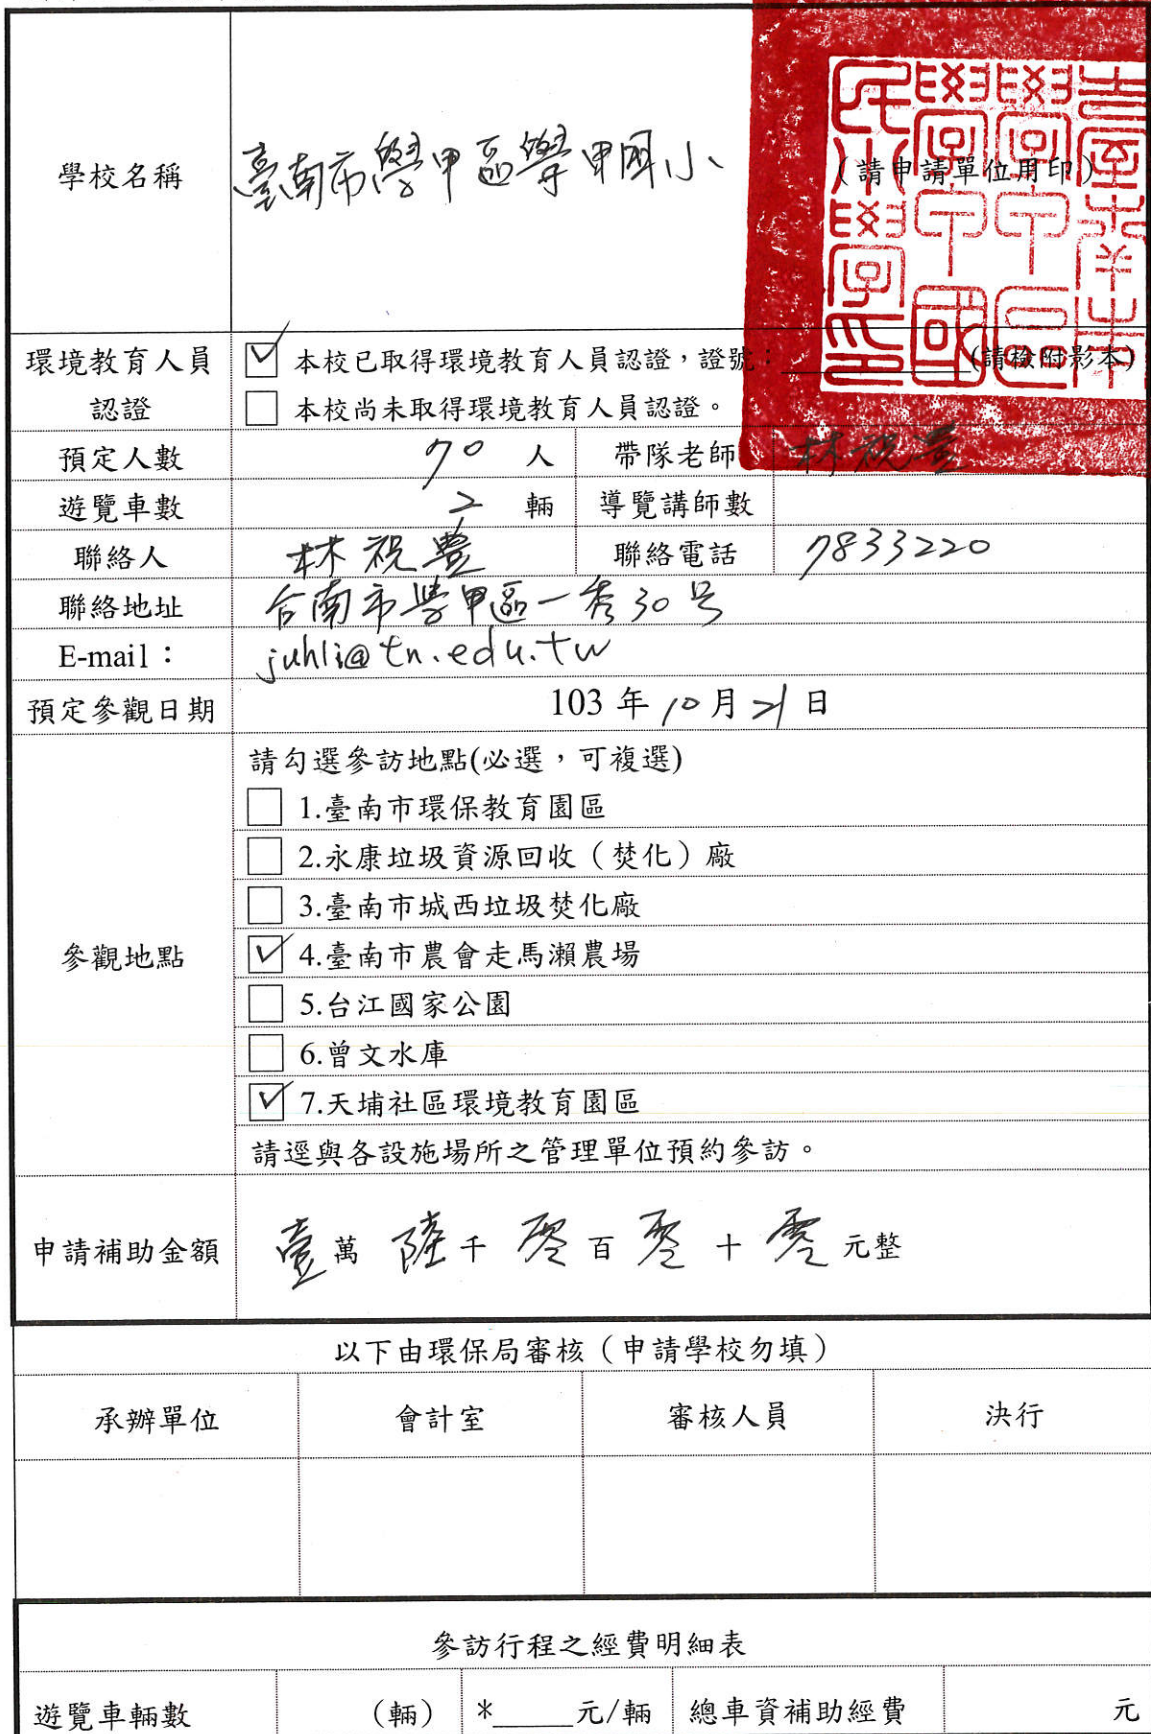 學校名稱
臺南市學甲區學甲國小
(請申請單位用印)
臺南市學甲區學甲國民小學印
環境教育人員認證
☑ 本校已取得環境教育人員認證，證號：__________(請檢附影本)
□ 本校尚未取得環境教育人員認證。
預定人數 70 人 帶隊老師 林祝豊
遊覽車數 2 輛 導覽講師數
聯絡人 林祝豊 聯絡電話 7833220
聯絡地址 台南市學甲區一秀30号
E-mail： juhli@tn.edu.tw
預定參觀日期 103 年 10 月 21 日
參觀地點
請勾選參訪地點(必選，可複選)
□ 1.臺南市環保教育園區
□ 2.永康垃圾資源回收（焚化）廠
□ 3.臺南市城西垃圾焚化廠
☑ 4.臺南市農會走馬瀨農場
□ 5.台江國家公園
□ 6.曾文水庫
☑ 7.天埔社區環境教育園區
請逕與各設施場所之管理單位預約參訪。
申請補助金額 壹 萬 陸 千 零 百 零 十 零 元整
以下由環保局審核（申請學校勿填）
承辦單位 會計室 審核人員 決行
參訪行程之經費明細表
遊覽車輛數 （輛） *_____元/輛 總車資補助經費 元